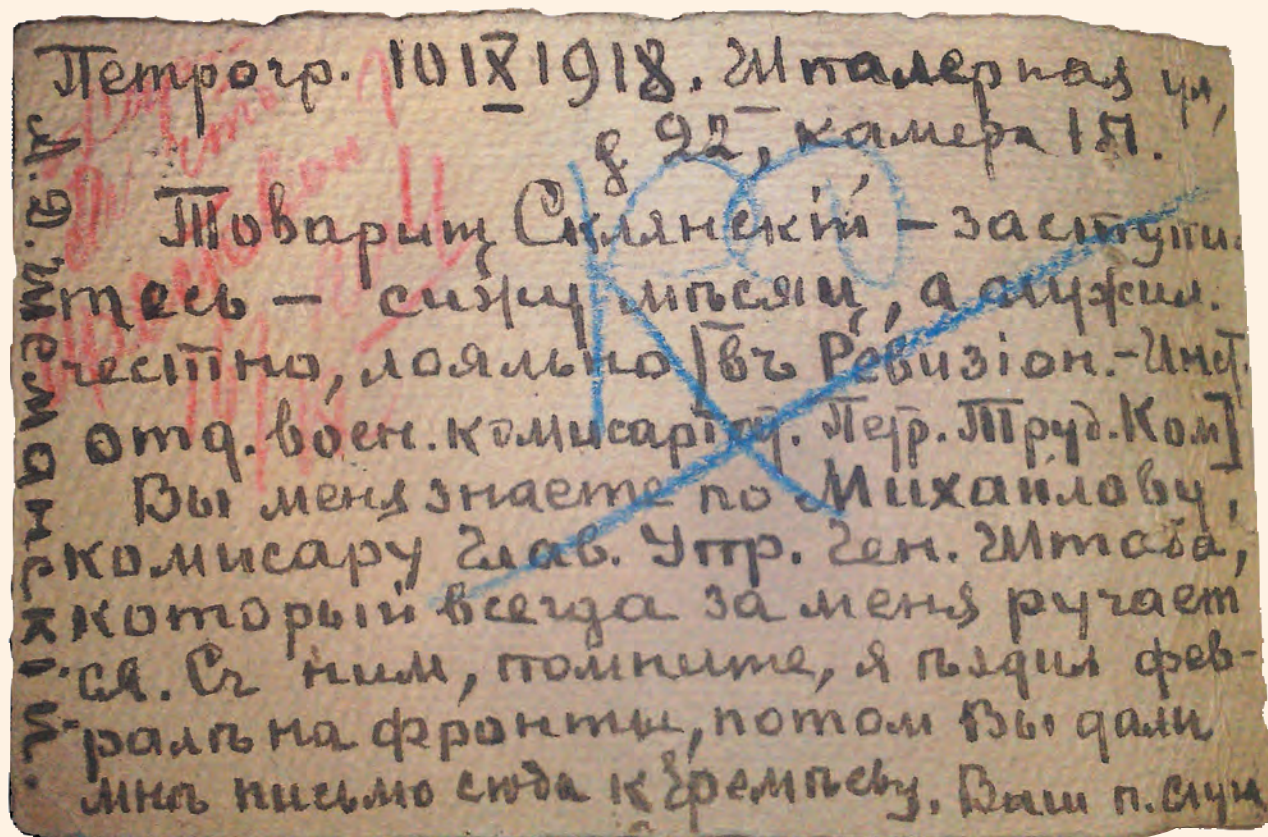 Петрогр. 10 IX 1918. Шпалерная ул,
д 22, камера 1П.
Товарищ Склянскій – заступи-
тесь – сижу мѣсяц, а служил
честно, лояльно [въ Ревизіон.-Инст.
отд. воен. комисаріат. Петр. Труд. Ком]
Вы меня знаете по Михайлову,
комисару Глав. Упр. Ген. Штаба,
который всегда за меня ручает
ся. Съ ним, помните, я ѣздил фев-
ралѣ на фронты, потом Вы дали
мнѣ письмо сюда к Еремѣеву. Ваш п. слуга
А. Д. Шеманскій.